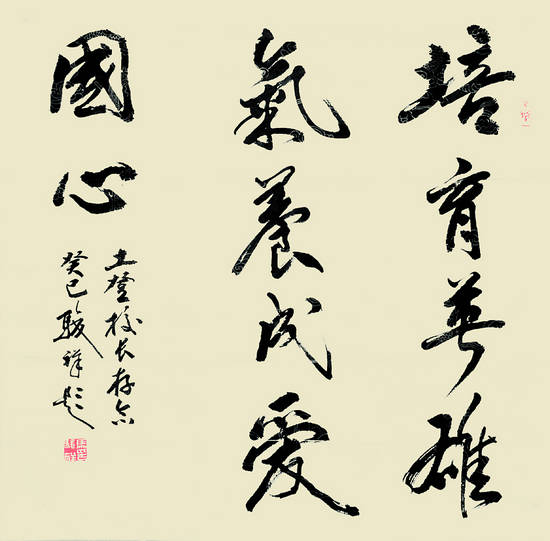 培育英雄
氣養成愛
國心
士登校长存念
癸巳駿祥題